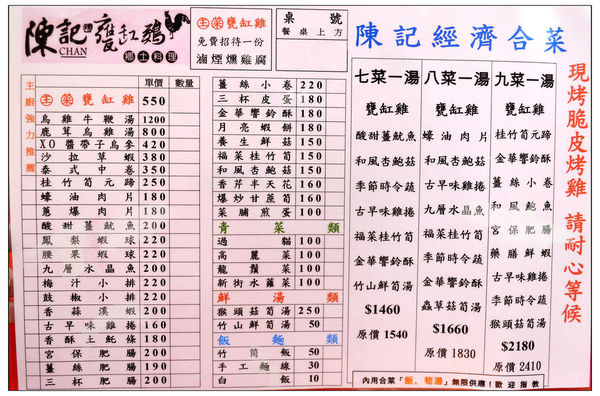 陳記甕缸雞
CHAN 鄉土料理
主菜甕缸雞
免費招待一份
滷煙燻雞腐
桌號
餐桌上方
主廚強力推薦
單價 數量
主菜甕缸雞 550
烏雞牛鞭湯 1200
鹿茸烏雞湯 800
XO醬帶子烏參 420
沙拉草蝦 380
泰式中卷 350
桂竹筍元蹄 250
蠔油肉片 180
蔥爆肉片 180
酸甜薑魷魚 200
鳳梨蝦球 220
腰果蝦球 220
九層水晶魚 200
梅汁小排 220
鼓椒小排 220
香蒜溪蝦 200
古早味雞捲 160
香酥土魠條 180
宮保肥腸 200
薑絲肥腸 190
三杯肥腸 200
薑絲小卷 220
三杯皮蛋 180
金華響鈴酥 180
月亮蝦餅 180
養生鮮菇 150
福菜桂竹筍 150
和風杏鮑菇 150
香芹半天花 160
爆炒甘蔗筍 160
菜脯煎蛋 100
青菜類
過貓 100
高麗菜 100
龍鬚菜 100
新街水蓮菜 100
鮮湯類
猴頭菇筍湯 250
竹山鮮筍湯 50
飯麵類
竹筒飯 50
手工麵線 30
白飯 10
陳記經濟合菜
七菜一湯
甕缸雞
酸甜薑魷魚
和風杏鮑菇
季節時令蔬
古早味雞捲
福菜桂竹筍
金華響鈴酥
竹山鮮筍湯
$1460
原價 1540
八菜一湯
甕缸雞
蠔油肉片
和風杏鮑菇
古早味雞捲
九層水晶魚
福菜桂竹筍
季節時令蔬
金華響鈴酥
蟲草菇筍湯
$1660
原價 1830
九菜一湯
甕缸雞
桂竹筍元蹄
金華響鈴酥
薑絲小卷
和風鮑魚
宮保肥腸
藥膳鮮蝦
古早味雞捲
季節時令蔬
猴頭菇筍湯
$2180
原價 2410
現烤脆皮烤雞 請耐心等候
內用合菜「飯、筍湯」無限供應！歡迎指教